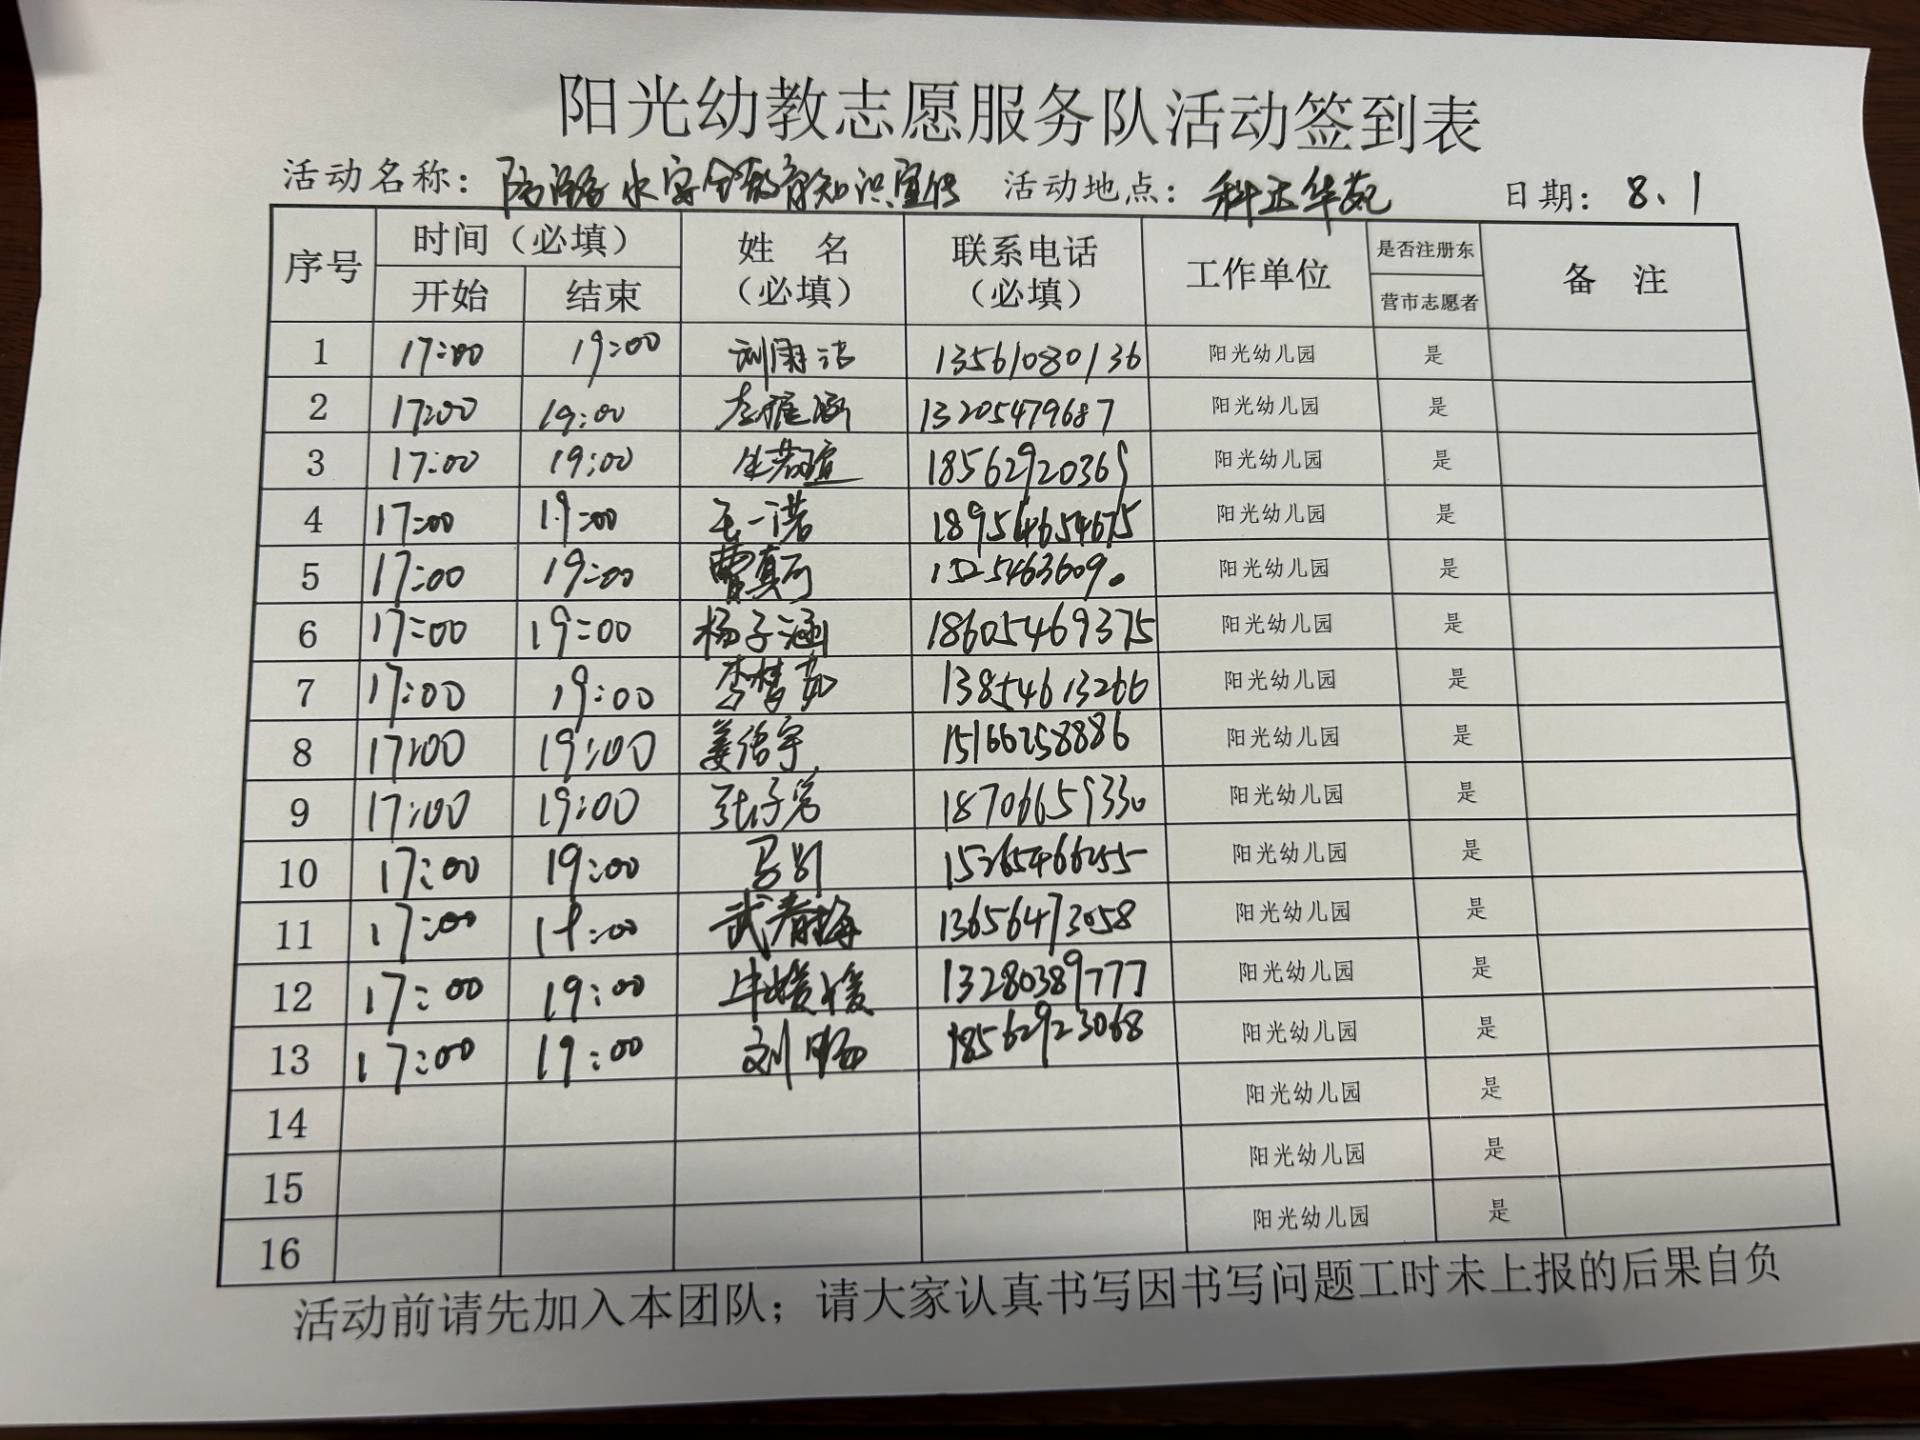 阳光幼教志愿服务队活动签到表
活动名称：防溺水安全教育知识宣传 活动地点：科正华苑 日期：8.1
序号 时间（必填） 姓名（必填） 联系电话（必填） 工作单位 是否注册东营市志愿者 备注
开始 结束
1 17:00 19:00 刘雨洁 13561080136 阳光幼儿园 是
2 17:00 19:00 13205479687 阳光幼儿园 是
3 17:00 19:00 生若瑄 18562920369 阳光幼儿园 是
4 17:00 19:00 王一诺 18954654675 阳光幼儿园 是
5 17:00 19:00 曹真可 15254636090 阳光幼儿园 是
6 17:00 19:00 杨子涵 18605469375 阳光幼儿园 是
7 17:00 19:00 李梦茹 13854613266 阳光幼儿园 是
8 17:00 19:00 15166258886 阳光幼儿园 是
9 17:00 19:00 18706659330 阳光幼儿园 是
10 17:00 19:00 15265466255 阳光幼儿园 是
11 17:00 19:00 武春梅 13656473058 阳光幼儿园 是
12 17:00 19:00 牛媛媛 13280389777 阳光幼儿园 是
13 17:00 19:00 刘畅 18562923068 阳光幼儿园 是
14 阳光幼儿园 是
15 阳光幼儿园 是
16 阳光幼儿园 是
活动前请先加入本团队；请大家认真书写因书写问题工时未上报的后果自负